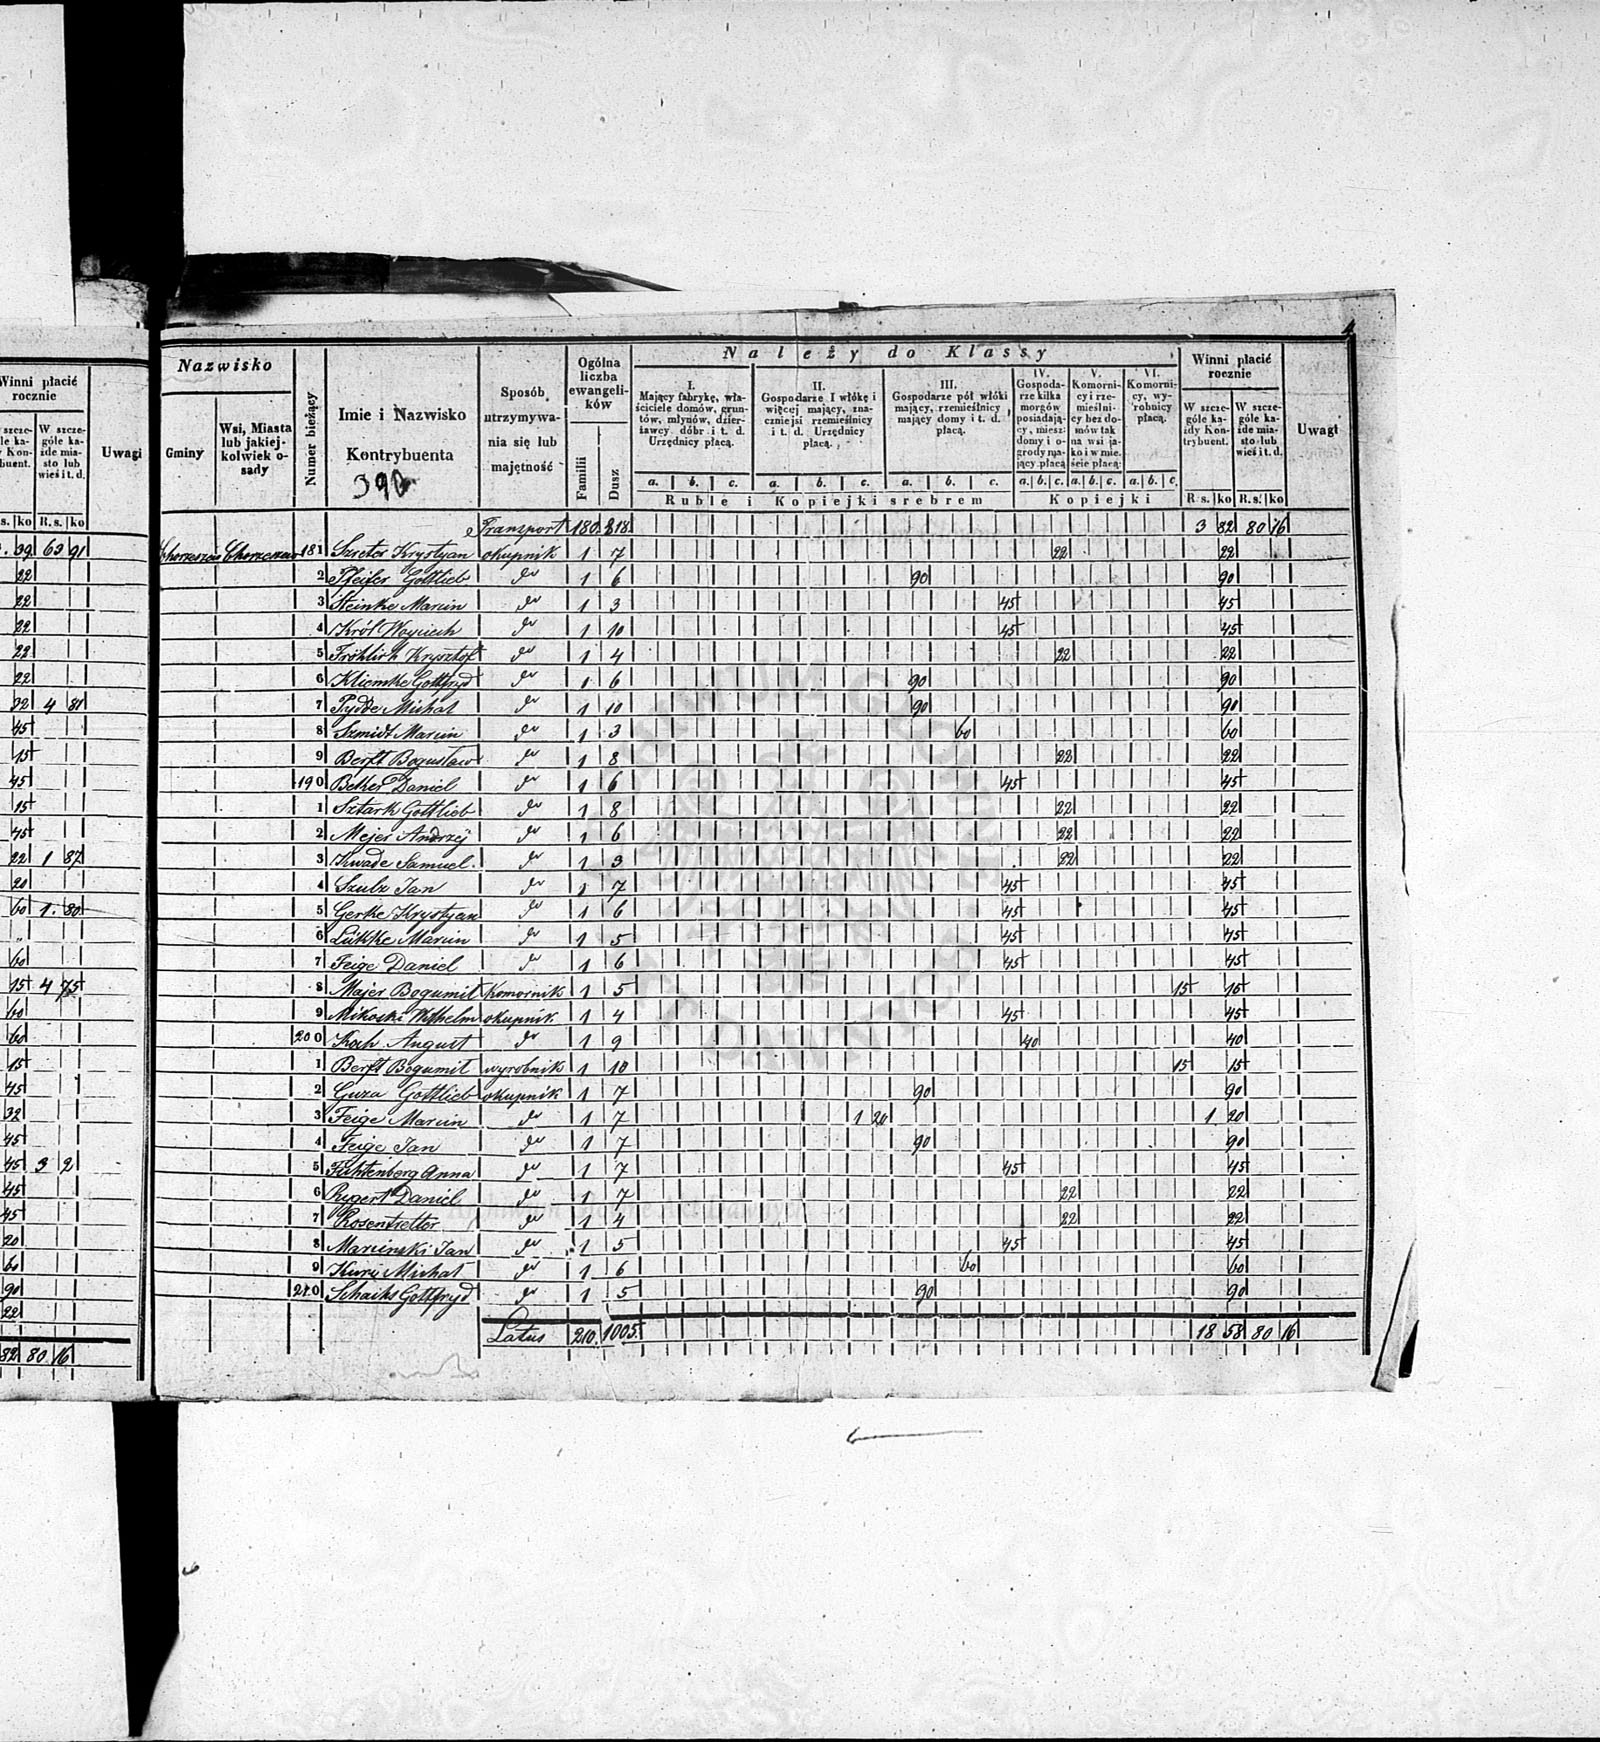 Winni płacić rocznie
Uwagi
39 63 91
22
22
22
22
22
32 4 81
45
15
45
15
45
22 1 87
20
60 1. 80
"
60
15 4 75
60
60
15
45
32
45
45 3 2
45
45
20
60
90
22
82 80 16
4
Nazwisko
Gminy
Wsi, Miasta lub jakiejkolwiek osady
Numer bieżący
Imie i Nazwisko Kontrybuenta
390
Sposób utrzymywania się lub majętność
Ogólna liczba ewangelików
Familii
Dusz
Należy do Klassy
I. Mający fabrykę, właściciele domów, gruntów, młynów, dzierżawcy dóbr i t. d. Urzędnicy płacą.
II. Gospodarze I włókę i więcej mający, znaczniejsi rzemieślnicy i t. d. Urzędnicy płacą.
III. Gospodarze pół włóki mający, rzemieślnicy mający domy i t. d. płacą.
IV. Gospodarze kilka morgów posiadający, mieszdomy i ogrody mający płacą
V. Komornicy i rzemieślnicy bez domów tak na wsi jako i w mieście płacą:
VI. Komornicy, wyrobnicy płacą.
a. b. c. a. b. c. a. b. c. a. b. c. a. b. c. a. b. c.
Ruble i Kopiejki srebrem
Kopiejki
Winni płacić rocznie
W szczególe każdy Kontrybuent.
W szczególe każde miasto lub wieś i t. d.
R s. ko R. s. ko
Uwagi
Transport 180. 818. 3 82 80 16
181 Szreter Krystyan okupnik 1 7 22 22
2 Pfeifer Gottlieb do 1 6 90 90
3 Steinke Marcin do 1 3 45 45
4 Król Woyciech do 1 10 45 45
5 Fröhlich Krysztof do 1 4 22 22
6 Kliemke Gottfryd do 1 6 90 90
7 Pydde Michał do 1 10 90 90
8 Szmidt Marcin do 1 3 60 60
9 Berft Bogusław do 1 8 22 22
190 Betker Daniel do 1 6 45 45
1 Sztark Gottlieb do 1 8 22 22
2 Mejer Andrzej do 1 6 22 22
3 Kwade Samuel. do 1 3 22 22
4 Szulz Jan do 1 7 45 45
5 Gerke Krystyan do 1 6 45 45
6 Lükke Marcin do 1 5 45 45
7 Feige Daniel do 1 6 45 45
8 Majer Bogumił Komornik 1 5 15 15
9 Mikoski Wilhelm okupnik 1 4 45 45
200 Koch August do 1 9 40 40
1 Berft Bogumił wyrobnik 1 10 15 15
2 Guza Gottlieb okupnik 1 7 90 90
3 Feige Marcin do 1 7 1 20 1 20
4 Feige Jan do 1 7 90 90
5 Fichtenberg Anna do 1 7 45 45
6 Rygert Daniel do 1 7 22 22
7 Rosentretter do 1 4 22 22
8 Marcinski Jan do 1 5 45 45
9 Michał do 1 6 60 60
210 Gottfryd do 1 5 90 90
Latus 210. 1005. 18 58 80 16